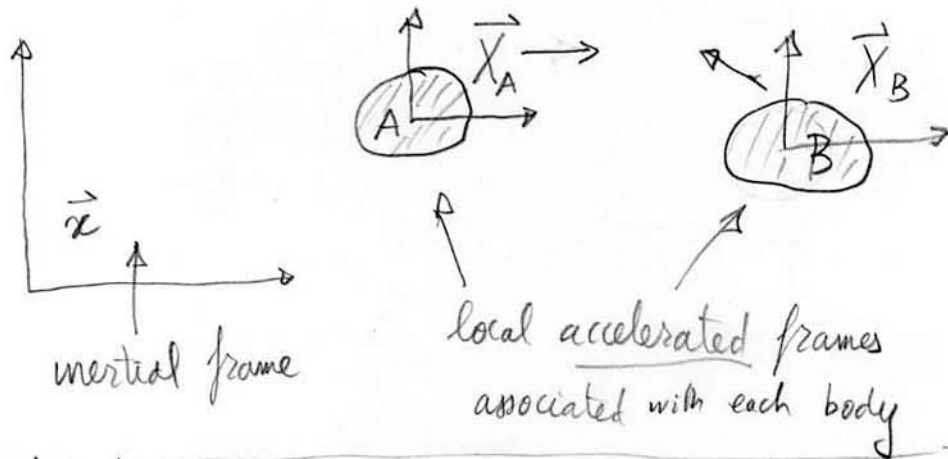 A
$\vec{X}_A$
B
$\vec{X}_B$
$\vec{x}$
inertial frame
local accelerated frames
associated with each body